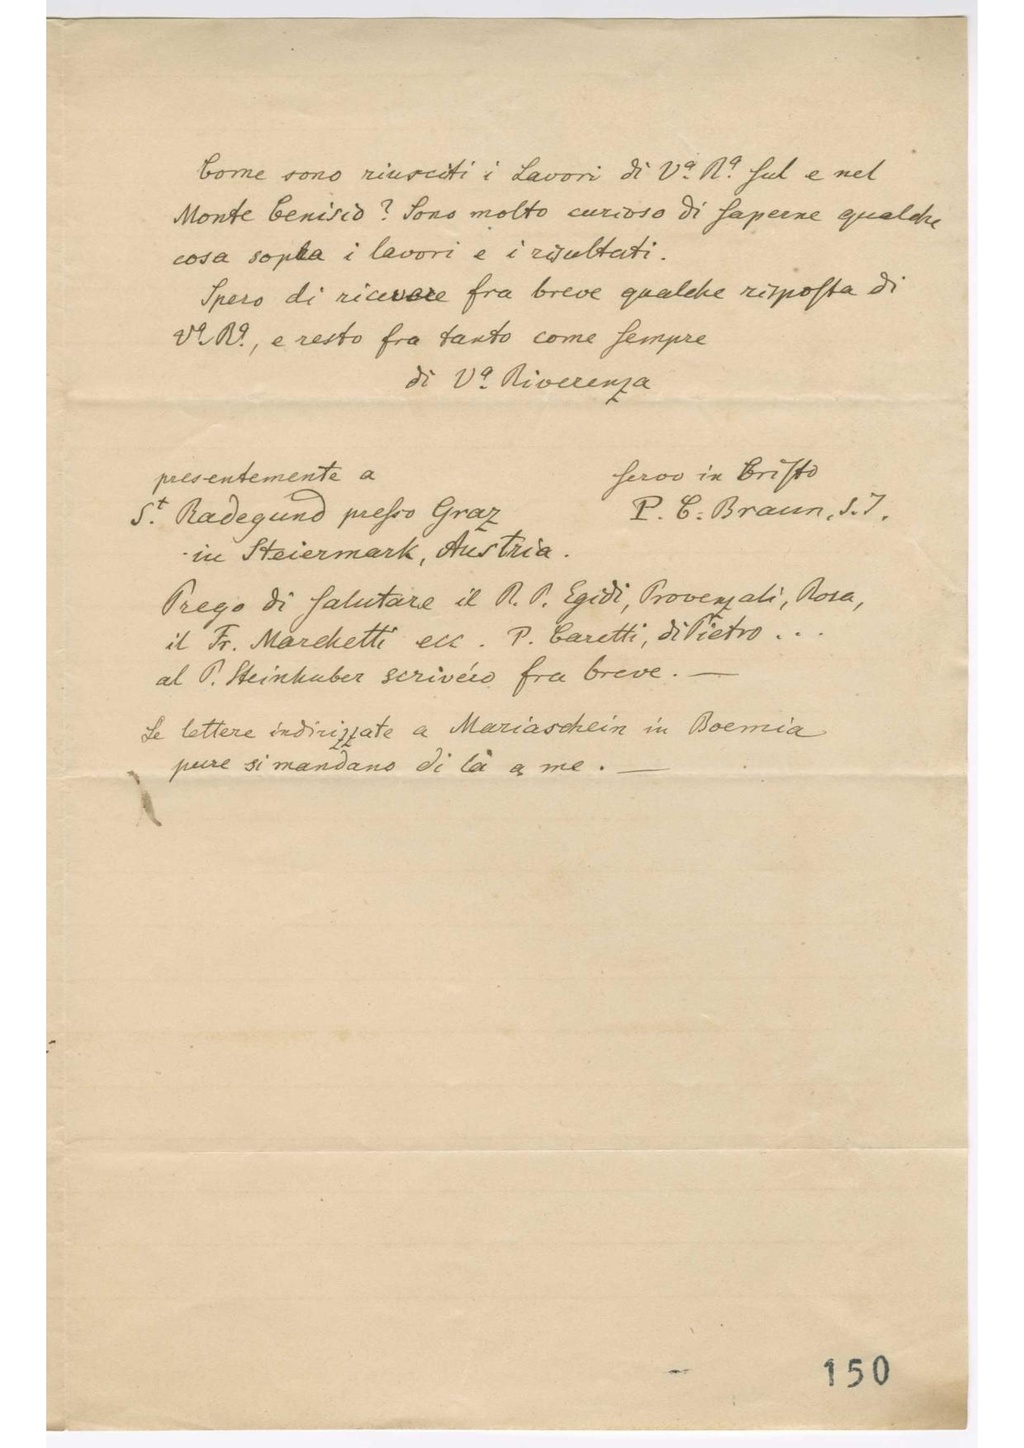 Come sono riusciti i Lavori di Vª Rª sul e nel
Monte Cenisio? Sono molto curioso di saperne qualche
cosa sopra i lavori e i risultati.
Spero di ricevere fra breve qualche risposta di
Vª Rª, e resto fra tanto come sempre
di Vª Riverenza
presentemente a
St. Radegund presso Graz
in Steiermark, Austria.
servo in Cristo
P. C. Braun, S.J.
Prego di salutare il R. P. Egidi, Provenzali, Rosa,
il Fr. Marchetti ecc. P. Caretti, di Pietro ...
al P. Steinhuber scriverò fra breve. —
Le lettere indirizzate a Mariaschein in Boemia
pure si mandano di là a me. —
150